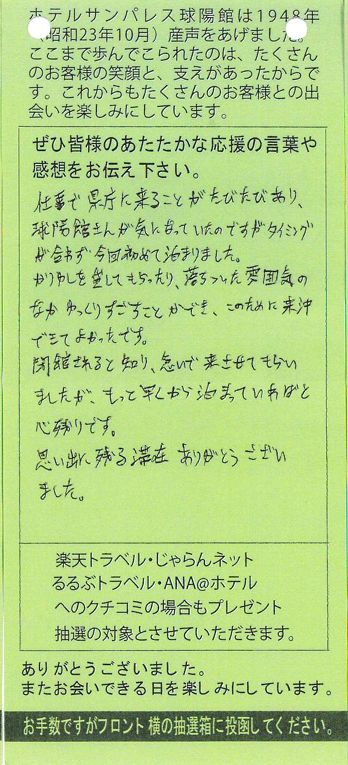 ホテルサンパレス球陽館は1948年
（昭和23年10月）産声をあげました。
ここまで歩んでこられたのは、たくさん
のお客様の笑顔と、支えがあったからで
す。これからもたくさんのお客様との出
会いを楽しみにしています。
ぜひ皆様のあたたかな応援の言葉や
感想をお伝え下さい。
仕事で県庁に来ることがたびたびあり、
球陽館さんが気になっていたのですがタイミング
が合わず今回初めて泊まりました。
かりゆしを貸してもらったり、落ちついた雰囲気の
なかゆっくりすごすことができ、このために来沖
できてよかったです。
閉館されると知り、急いで来させてもらい
ましたが、もっと早くから泊まっていればと
心残りです。
思い出に残る滞在 ありがとうござい
ました。
楽天トラベル・じゃらんネット
るるぶトラベル・ANA@ホテル
へのクチコミの場合もプレゼント
抽選の対象とさせていただきます。
ありがとうございました。
またお会いできる日を楽しみにしています。
お手数ですがフロント横の抽選箱に投函してください。